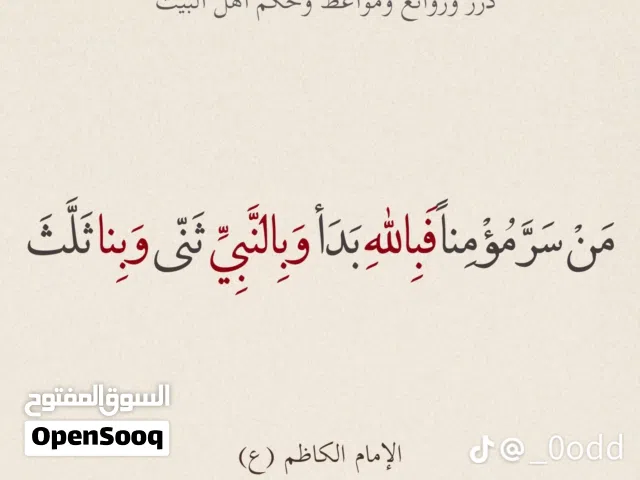 درر وروائع ومواعظ وحكم أهل البيت
مَنْ سَرَّ مُؤْمِناً فَبِاللهِ بَدَأ وَبِالنَّبِيِّ ثَنّى وَبِنا ثَلَّثَ
السوق المفتوح
OpenSooq
الإمام الكاظم (ع)
@_0odd